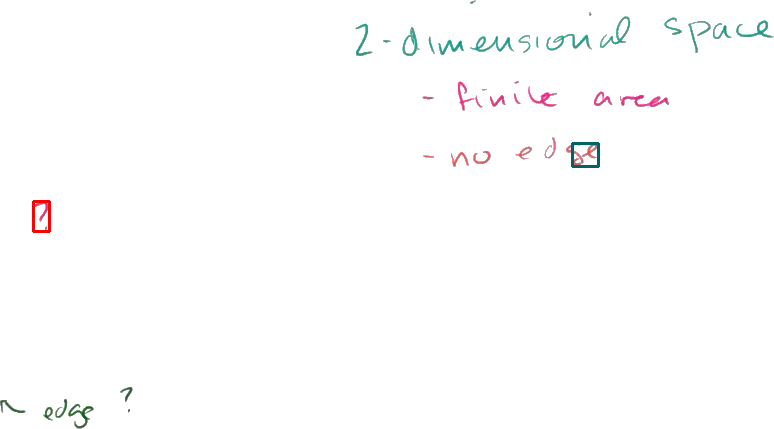 2-dimensional space
- finite area
- no edge
?
↖ edge ?